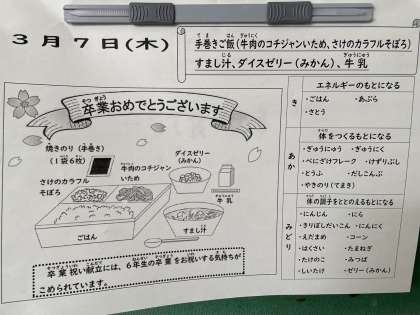 3月7日(木)
手巻きご飯(牛肉のコチジャンいため、さけのカラフルそぼろ)
すまし汁、ダイスゼリー(みかん)、牛乳
卒業おめでとうございます
焼きのり(手巻き)
(1袋6枚)
牛肉のコチジャン
いため
ダイスゼリー
(みかん)
さけのカラフル
そぼろ
牛乳
ごはん
すまし汁
卒業祝い献立には、6年生の卒業をお祝いする気持ちが
こめられています。
き
エネルギーのもとになる
・ごはん ・あぶら
・さとう
あか
体をつくるもとになる
・ぎゅうにゅう ・ぎゅうにく
・べにざけフレーク ・けずりぶし
・とうふ ・だしこんぶ
・やきのり(てまき)
みどり
体の調子をととのえるもとになる
・にんじん ・にら
・きりぼしだいこん ・にんにく
・えだまめ ・コーン
・はくさい ・たまねぎ
・たけのこ ・みつば
・しいたけ ・ゼリー(みかん)